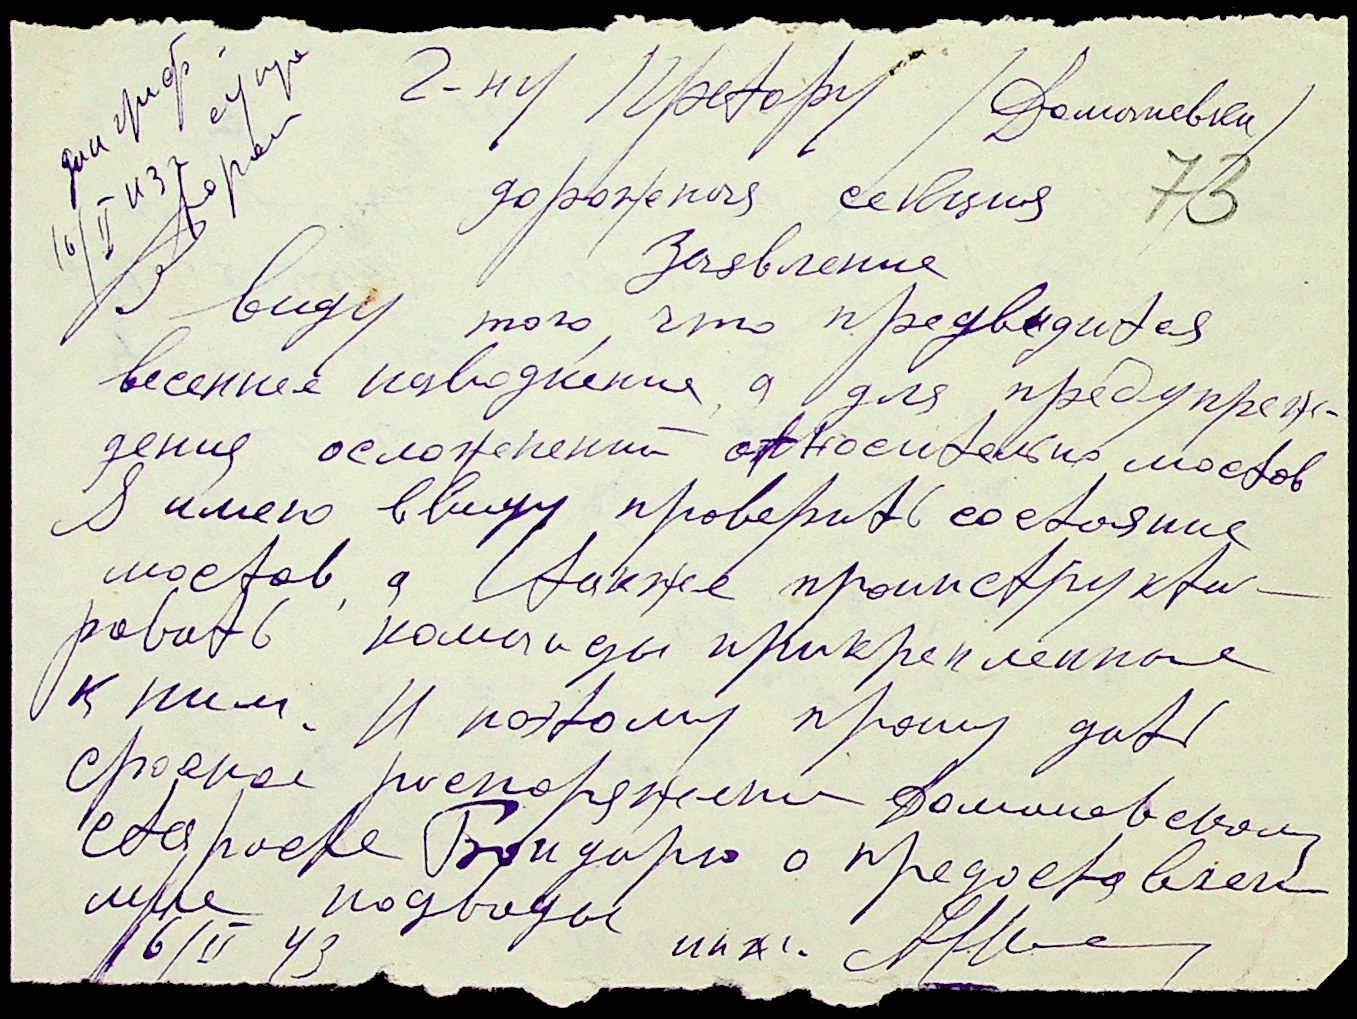 16/II 43г
Г-ну Претору /Домановки/
73
дорожная секция
Заявление
В виду того, что предвидится
весеннее наводнение, а для предупреж-
дения осложнений относительно мостов
Я имею ввиду проверить состояние
мостов, а также проинструкти-
ровать команды прикрепленные
к ним. И поэтому прошу дать
срочное распоряжение Домановскому
старосте Бондарю о предоставлении
мне подводы
16/II 43 инж.